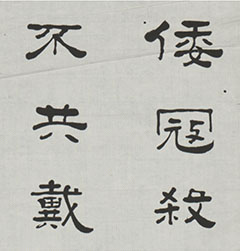 倭冦殺
不共戴